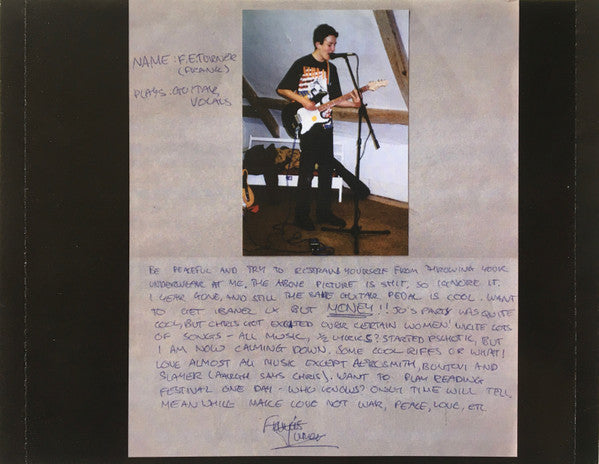 NAME: F.E.TURNER
(FRANK)
PLAYS: GUITAR,
VOCALS
BE PEACEFUL AND TRY TO RESTRAIN YOURSELF FROM THROWING YOUR
UNDERWEAR AT ME. THE ABOVE PICTURE IS SHIT, SO IGNORE IT.
1 YEAR GONE, AND STILL THE SAME GUITAR PEDAL IS COOL. WANT
TO GET IBANEZ LX BUT MONEY!! JO'S PARTY WAS QUITE
COOL, BUT CHRIS GOT EXCITED OVER CERTAIN WOMEN. WRITE LOTS
OF SONGS - ALL MUSIC, ½ LYRICS? STARTED PSCHOTIC, BUT
I AM NOW CALMING DOWN. SOME COOL RIFFS OR WHAT!
LOVE ALMOST ALL MUSIC EXCEPT AEROSMITH, BONJOVI AND
SLAYER (AARGH SAYS CHRIS). WANT TO PLAY READING
FESTIVAL ONE DAY - WHO KNOWS? ONLY TIME WILL TELL,
MEANWHILE MAKE LOVE NOT WAR, PEACE, LOVE, ETC
Francis
Turner